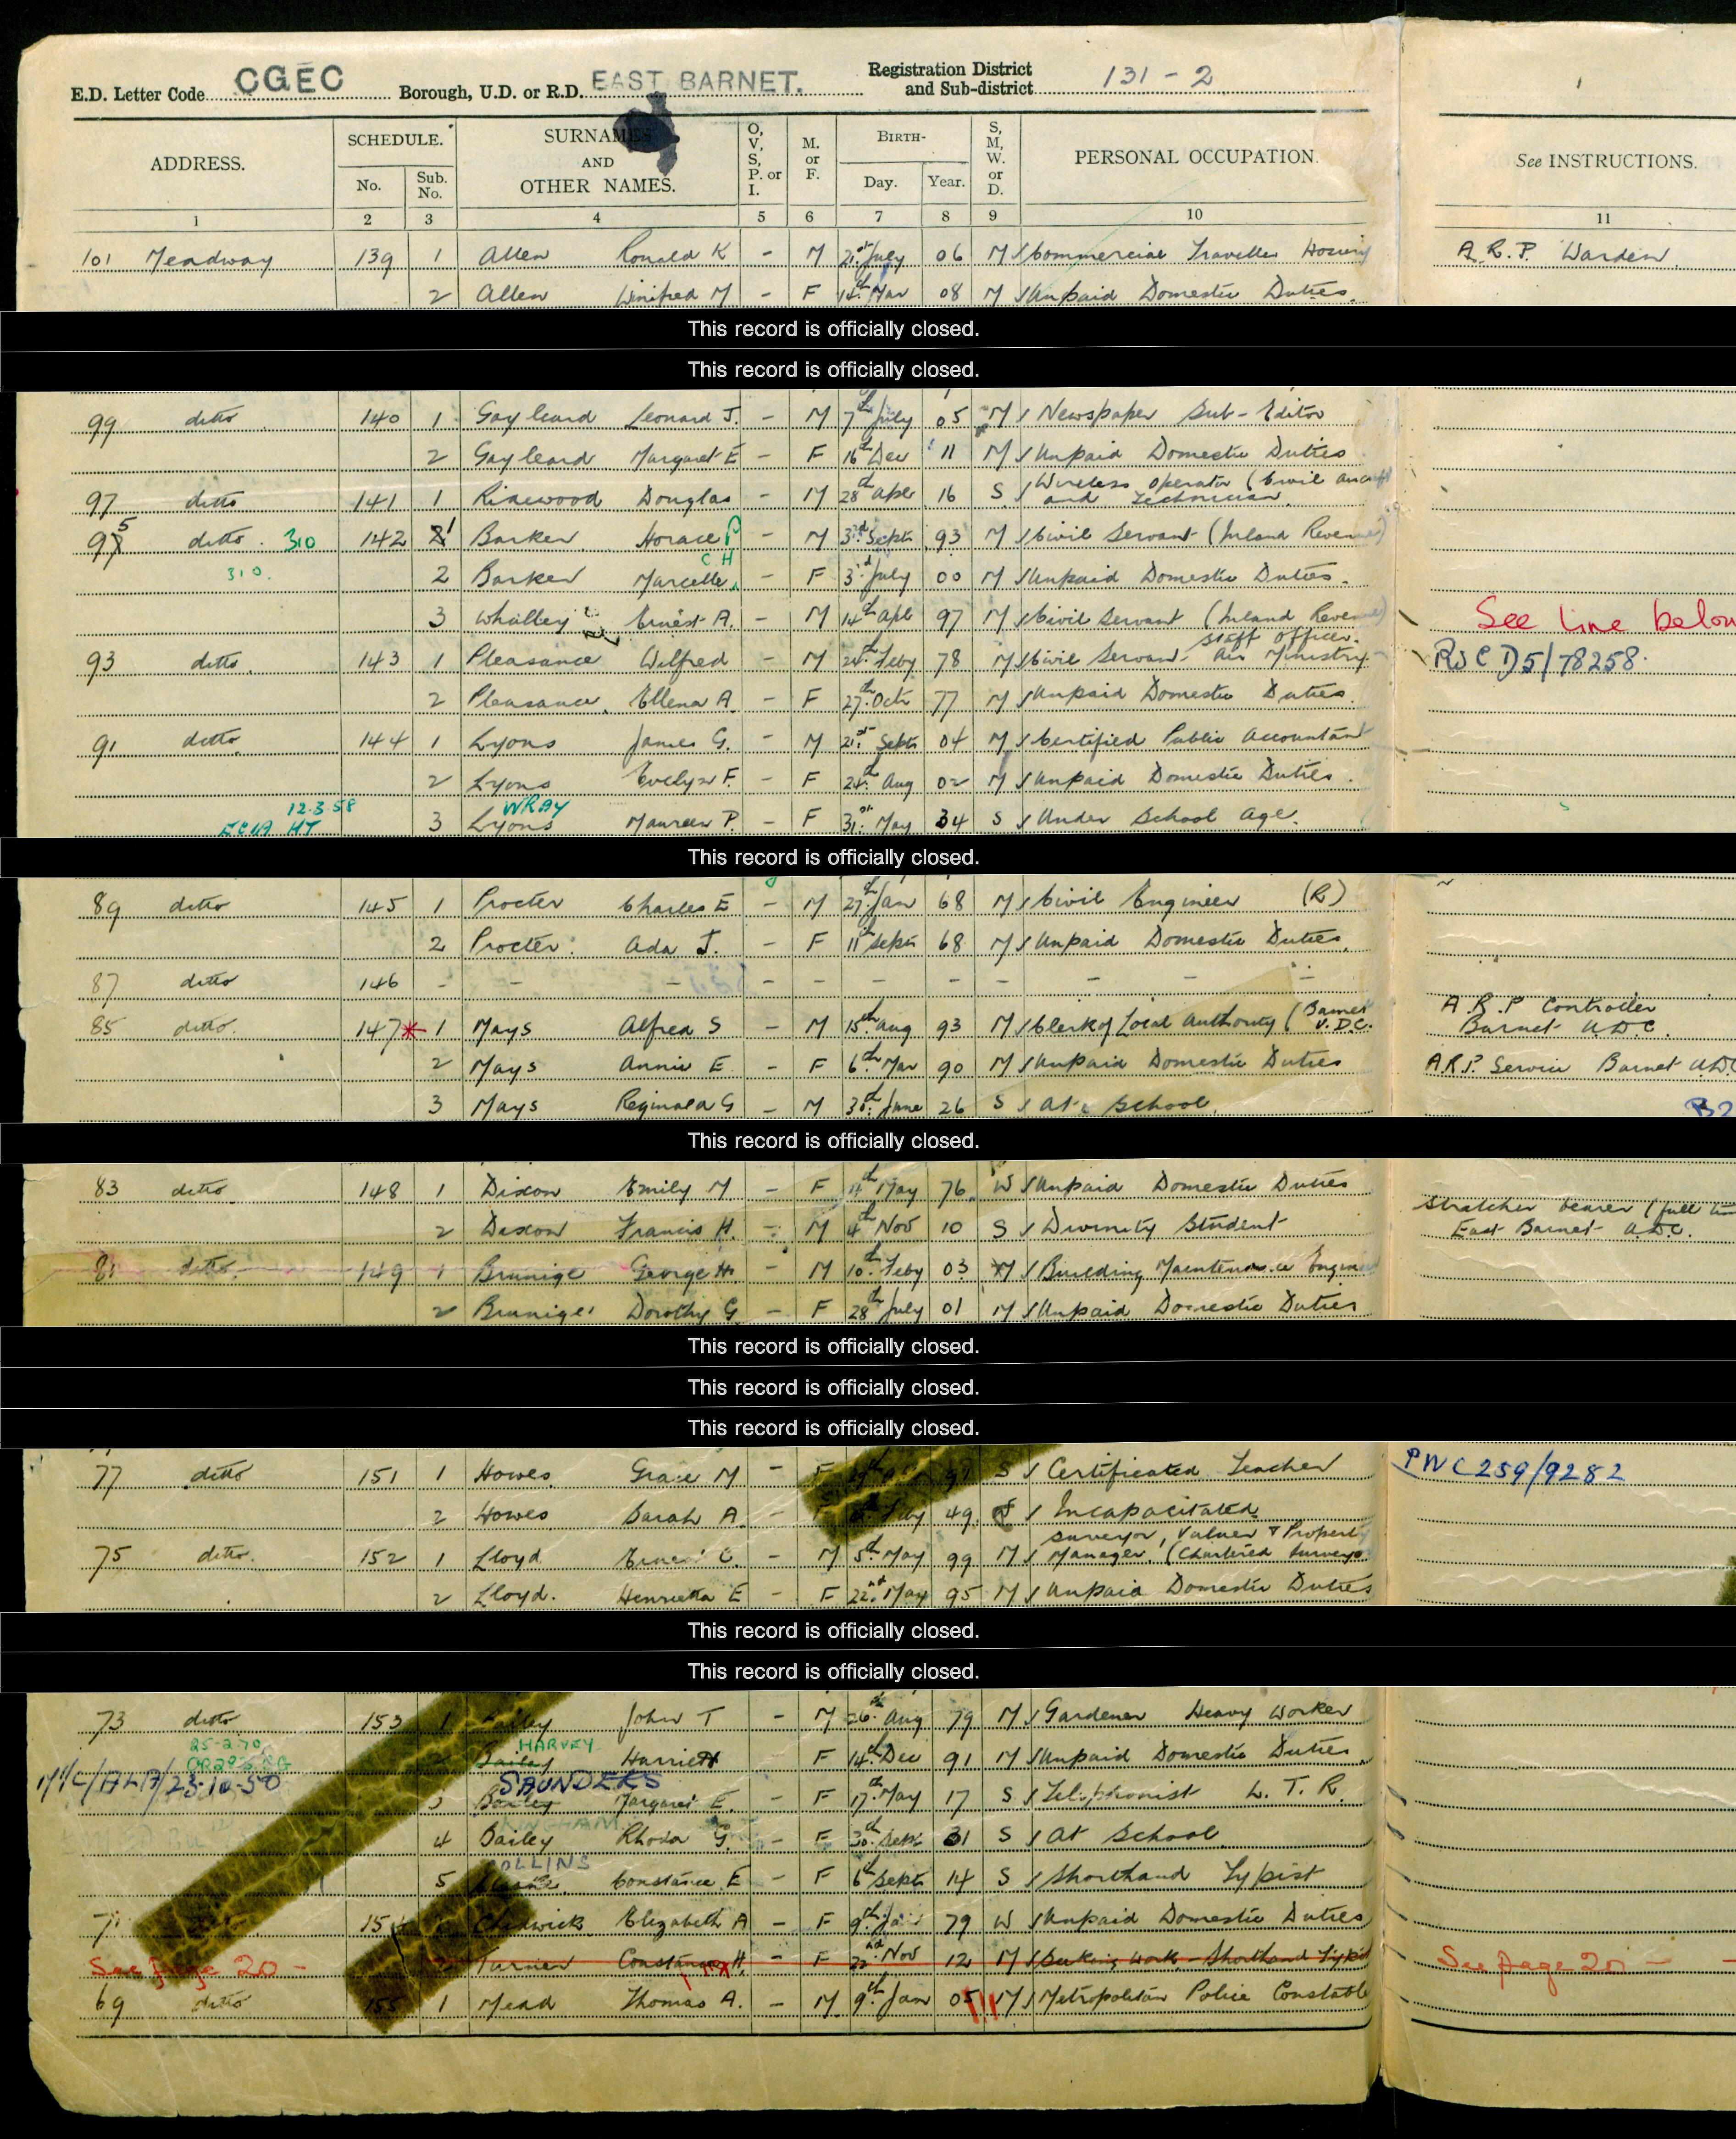 E.D. Letter Code CGEC Borough, U.D. or R.D. EAST BARNET. Registration District and Sub-district 131 - 2
ADDRESS. SCHEDULE. No. Sub. No. SURNAMES AND OTHER NAMES. O, V, S, P. or I. M. or F. BIRTH- Day. Year. S, M, W. or D. PERSONAL OCCUPATION. See INSTRUCTIONS.
1 2 3 4 5 6 7 8 9 10 11
101 Meadway 139 1 Allen Ronald K - M 21st July 06 M Commercial Traveller Hosiery A.R.P. Warden.
2 Allen Winifred M - F 14th Mar 08 M Unpaid Domestic Duties.
This record is officially closed.
This record is officially closed.
99 ditto 140 1 Gayleard Leonard J. - M 7th July 05 M Newspaper Sub-Editor
2 Gayleard Margaret E - F 16th Dec 11 M Unpaid Domestic Duties
97 ditto 141 1 Ridewood Douglas - M 28th Apl 16 S Wireless Operator (Civil and Technician
95 ditto. 310 142 1 Barker Horace P - M 3rd Sept 93 M Civil Servant (Inland Revenue)
310. 2 Barker Marcelle C H - F 3rd July 00 M Unpaid Domestic Duties.
3 Whalley Ernest A. - M 14th Apl 97 M Civil Servant (Inland Revenue) See line below
93 ditto. 143 1 Pleasance Wilfred - M 24th Feby 78 M Civil Servant Staff Officer. Air Ministry. RSCD5/78258.
2 Pleasance Ellena A. - F 27th Oct 77 M Unpaid Domestic Duties.
91 ditto. 144 1 Lyons James G. - M 21st Sept 04 M Certified Public Accountant
2 Lyons Evelyn F. - F 24th Aug 02 M Unpaid Domestic Duties.
12.3.58 HT 3 Lyons WRAY Maureen P. - F 31st May 34 S Under School Age.
This record is officially closed.
89 ditto 145 1 Procter Charles E - M 27th Jan 68 M Civil Engineer (R)
2 Procter. Ada J. - F 11th Sept 68 M Unpaid Domestic Duties.
87 ditto 146 - - - - - - - - - -
85 ditto. 147* 1 Mays Alfred S - M 15th Aug 93 M Clerk of Local Authority (Barnet U.D.C. A.R.P Controller Barnet U.D.C.
2 Mays Annie E - F 6th Mar 90 M Unpaid Domestic Duties A.R.P. Service Barnet U.D.C
3 Mays Reginald G - M 30th June 26 S At School. B2
This record is officially closed.
83 ditto. 148 1 Dixon Emily M - F 11th May 76 W Unpaid Domestic Duties
2 Dixon Francis H. - M 4th Nov 10 S Divinity Student Stretcher bearer (full time East Barnet U.D.C.
81 ditto. 149 1 Brunige George H. - M 10th Feby 03 M Building Maintenance Engineer
2 Brunige Dorothy G - F 28th July 01 M Unpaid Domestic Duties
This record is officially closed.
This record is officially closed.
This record is officially closed.
77 ditto 151 1 Howes Grace M - F 97 S Certificated Teacher PWC259/9282
2 Howes Sarah A. - Feby 49 Incapacitated
75 ditto. 152 1 Lloyd Ernest C. - M 5th May 99 M Surveyor, Valuer & Property Manager (Chartered Surveyor
2 Lloyd. Henrietta E - F 22nd May 95 M Unpaid Domestic Duties
This record is officially closed.
This record is officially closed.
73 ditto 153 1 Bailey John T - M 26th Aug 79 M Gardener Heavy Worker
25-2-70 2 Bailey HARVEY Harriett F 14th Dec 91 M Unpaid Domestic Duties.
23-10-50 3 Bailey SAUNDERS Margaret E. - F 17th May 17 S Telephonist L.T.R.
4 Bailey KINGHAM Rhoda G - F 30th Sept 31 S At School
5 COLLINS Constance E - F 6th Sept 14 S Shorthand Typist
71 154 Chadwick Elizabeth A - F 9th Jan 79 W Unpaid Domestic Duties
See page 20 - 2 Turner Constance H. - F 22nd Nov 12 M Seeking Work - Shorthand Typist See page 20 -
69 ditto 155 1 Mead Thomas A. - M 9th Jan 05 M Metropolitan Police Constable